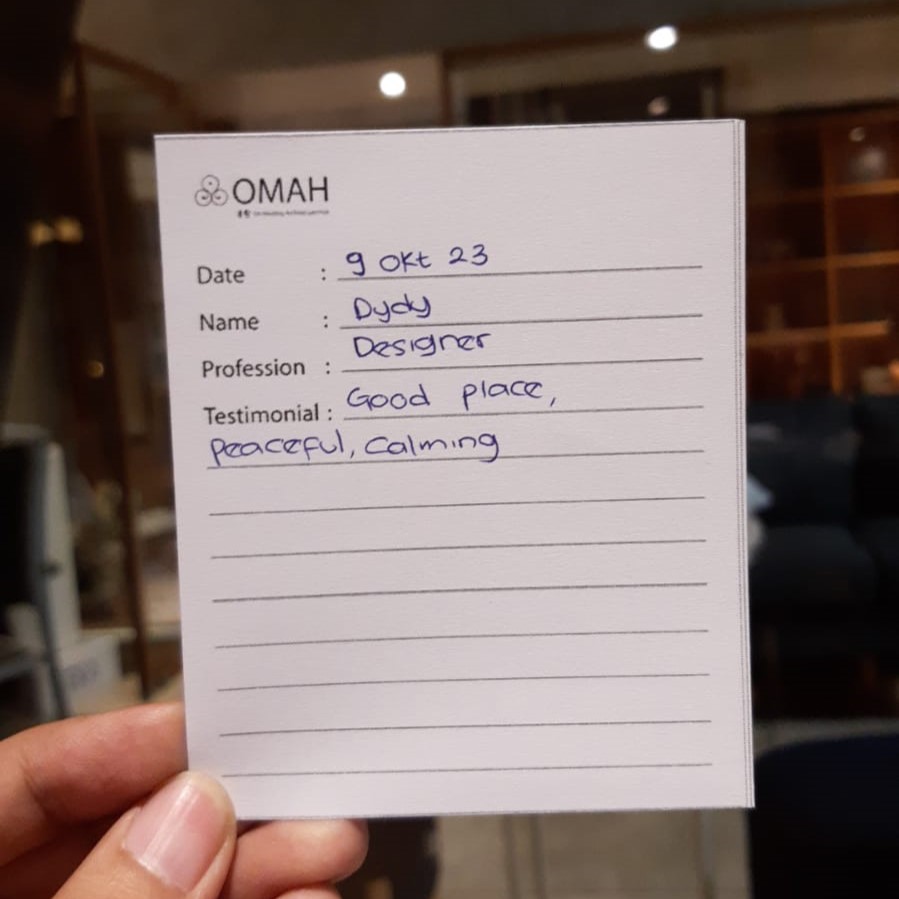 OMAH
Date : 9 Okt 23
Name : Dydy
Profession : Designer
Testimonial : Good place,
Peaceful, Calming